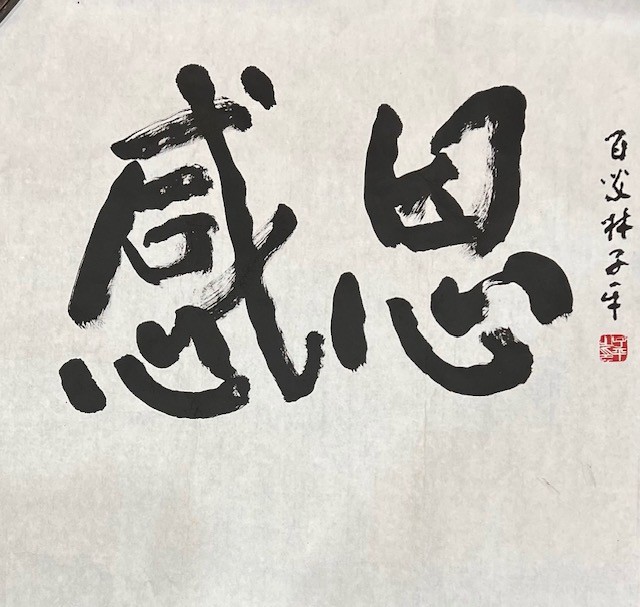 感恩
百岁林子平